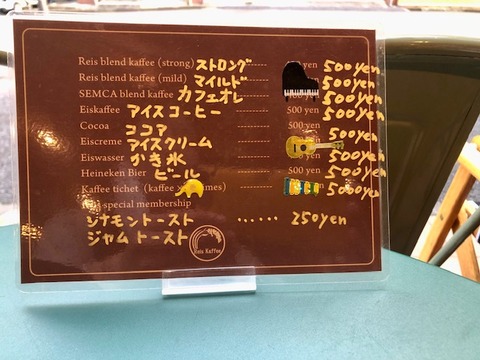 Reis blend kaffee (strong) ストロング 500yen
Reis blend kaffee (mild) マイルド 500yen
SEMCA blend kaffee カフェオレ 500yen
Eiskaffee アイスコーヒー 500 500yen
Cocoa ココア 500 500yen
Eiscreme アイスクリーム 500yen
Eiswasser かき氷 500yen
Heineken Bier ビール 500 yen 500yen
Kaffee tichet (kaffee 5000yen
special membership
シナモントースト ...... 250yen
ジャムトースト
Reis Kaffee